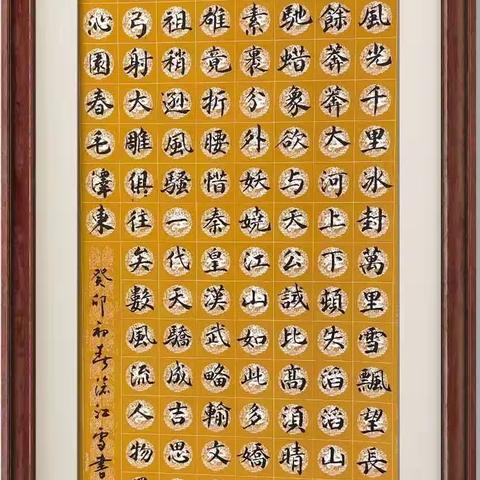 風光千里冰封萬里雪飄望長
餘莽莽大河上下頓失滔滔山
馳蜡象欲与天公試比髙湏晴
素裹分外妖嬈江山如此多嬌
雄竟折腰惜秦皇漢武略輸文
祖稍遜風騷一代天驕成吉思
弓射大雕俱往矣數風流人物
沁園春毛澤東
癸卯初春江雪書